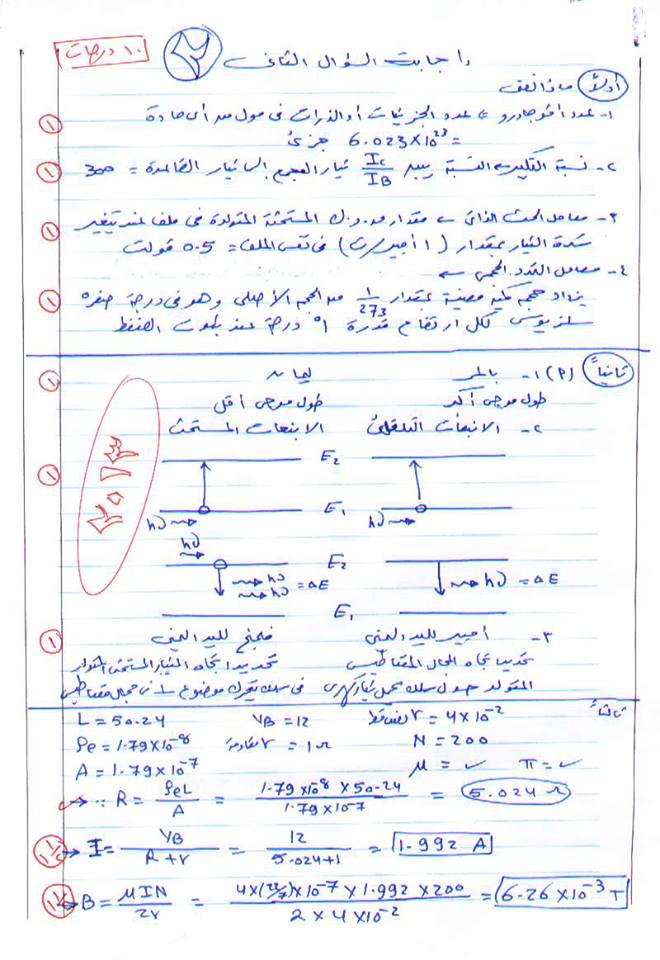 ١٠ درجات
إجابة السؤال الثانى
أولاً ماذا نقصد
١- عدد أفوجادرو = عدد الجزيئات أو الذرات فى مول من أى مادة
= 6.023×10²³ جزئ
١
٢- نسبة التكبير = النسبة بين Ic/IB تيار المجمع إلى تيار القاعدة = 300
١
٣- معامل الحث الذاتى = مقدار ق.د.ك المستحثة المتولدة فى ملف عند تغير
شدة التيار بمقدار (١ أمبير/ث) فى نفس الملف = 0.5 فولت
١
٤- معامل التمدد الحجمى =
يزداد حجم كمية معينة بمقدار 1/273 من الحجم الأصلى وهو فى درجة صفر
سلزيوس لكل ارتفاع قدره ١° درجة عند ثبوت الضغط
١
ثانياً (٢) ١- بالمر ليمان
طول موجى أكبر طول موجى أقل
١
٢- الانبعاث التلقائى الانبعاث المستحث
E₂
E₁
hυ hυ
١
hυ
E₂
hυ
hυ = ΔE
hυ = ΔE
E₁
٣- أمبير لليد اليمنى فلمنج لليد اليمنى
تحديد اتجاه المجال المغناطيسى تحديد اتجاه التيار المستحث المتولد
المتولد حول سلك يحمل تيار كهربى فى سلك يتحرك موضوع فى مجال مغناطيسى
١
ثالثاً
L = 50.24 VB = 12 r = 4×10⁻²
ρe = 1.79×10⁻⁸ r = 1Ω N = 200
A = 1.79×10⁻⁷ μ = ✓ π = ✓
∵ R = ρeL/A = 1.79×10⁸ × 50.24 / 1.79×10⁻⁷ = 5.024 Ω
I = VB/R+r = 12/5.024+1 = 1.992 A
B = μIN/2r = 4×(22/7)×10⁻⁷ × 1.992 × 200 / 2×4×10⁻² = 6.26×10⁻³ T